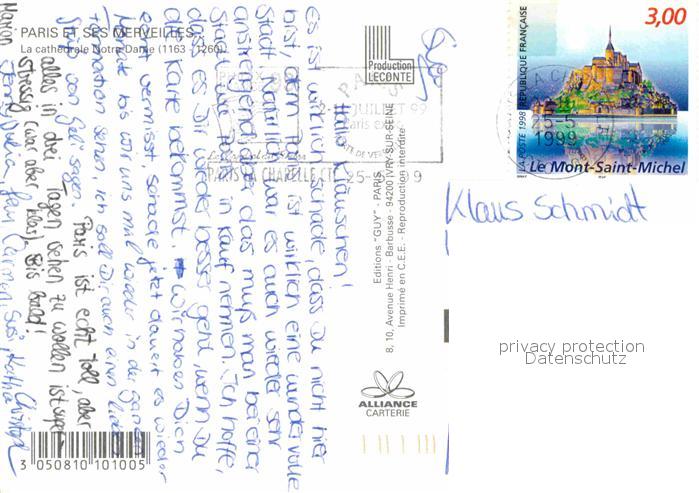 PARIS ET SES MERVEILLES
La cathédrale Notre-Dame (1163 - 1260)
Production
LECONTE
Hi Kläuschen!
Es ist wirklich schade, dass Du nicht hier
bist, denn Paris ist wirklich eine wundervolle
Stadt. Natürlich war es auch wieder sehr
anstrengend, aber das muß man bei einer
Stadt wie dieser in kauf nehmen. Ich hoffe,
dass es Dir wieder besser geht, wenn Du
die Karte bekommst. Wir haben Dich
echt vermisst, schade, jetzt dauert es wieder
Monate bis wir uns mal wieder in der ganzen
Formation sehen. Ich soll Dir auch einen lieben
von Gabi sagen.
Paris ist echt toll, aber
alles in drei Tagen sehen zu wollen ist super-
stressig (war aber klar). Bis bald!
Carmen, Susi, Katha
Christoph
Editions "GUY" - PARIS
8, 10, Avenue Henri - Barbusse - 94200 IVRY-SUR-SEINE
Imprimé en C.E.E. - Reproduction interdite
ALLIANCE
CARTERIE
3 050810 101005
PARIS LA CHAPELLE CTC 25-5-99
JUILLET 99
3,00
RÉPUBLIQUE FRANÇAISE
LA POSTE 1998
Le Mont-Saint-Michel
25-5
1999
Klaus Schmidt
privacy protection
Datenschutz